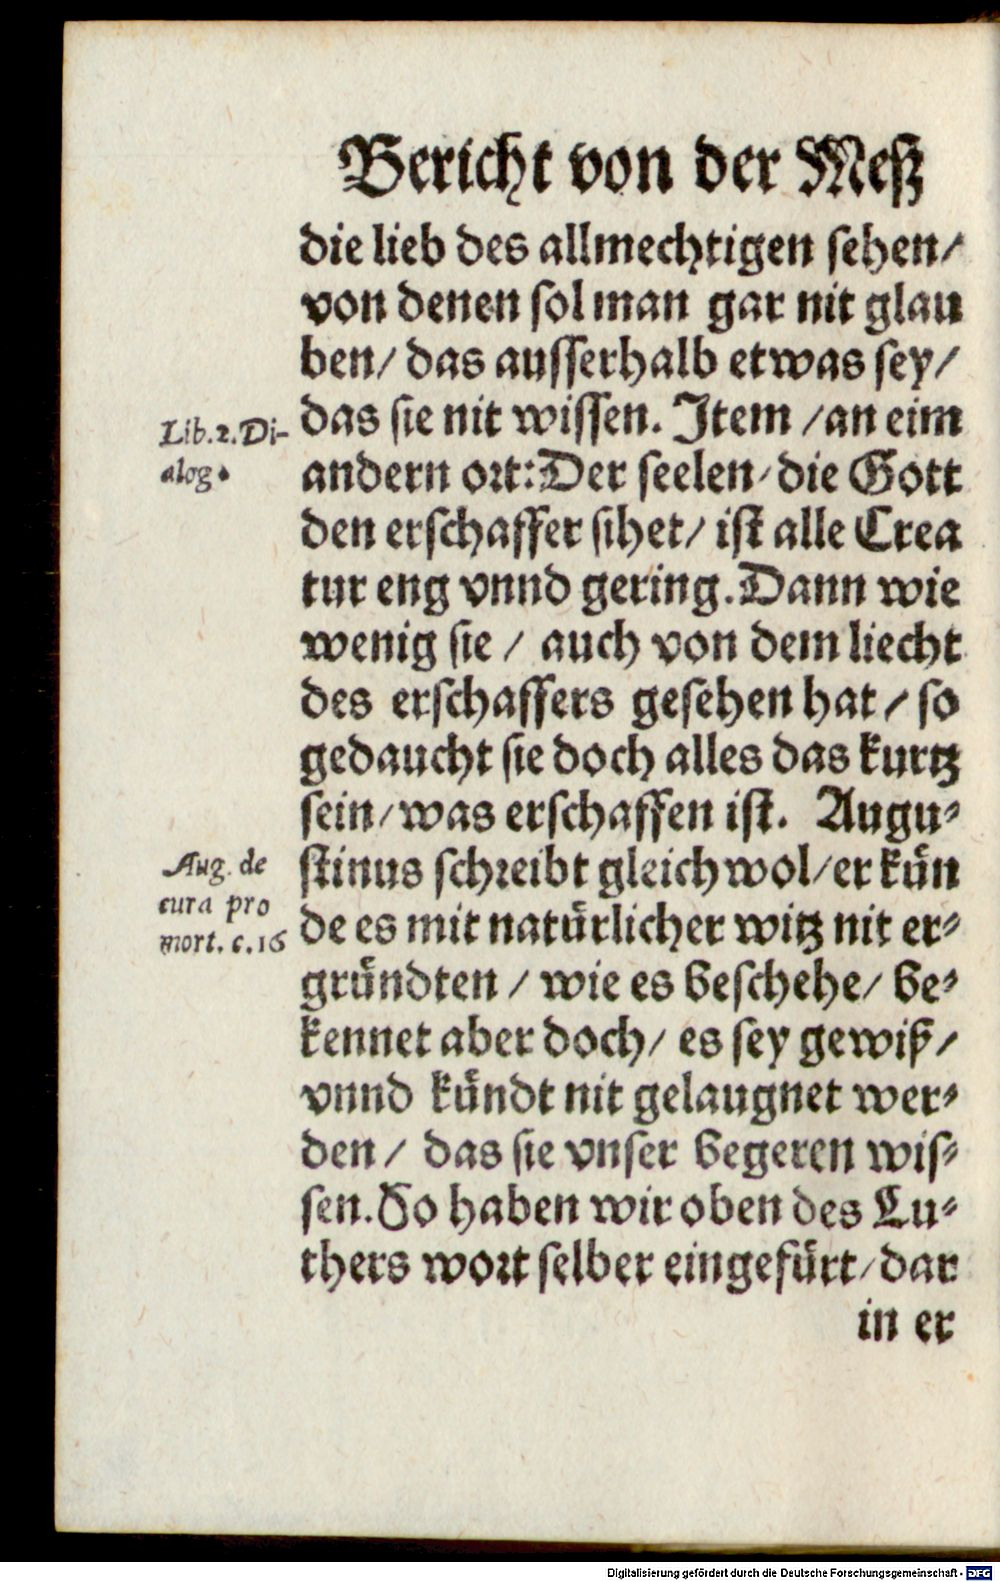 Bericht von der Meß
die lieb des allmechtigen sehen/
von denen sol man gar nit glau
ben/ das ausserhalb etwas sey/
das sie nit wissen. Item /an eim
Lib.2.Di-
alog.
andern ort: Der seelen/die Gott
den erschaffer sihet/ ist alle Crea
tur eng vnnd gering. Dann wie
wenig sie / auch von dem liecht
des erschaffers gesehen hat / so
gedaucht sie doch alles das kurtz
sein/was erschaffen ist. Augu-
stinus schreibt gleich wol/er kün
Aug. de
cura pro
mort. c.16
de es mit natürlicher witz nit er-
gründten / wie es beschehe/ be-
kennet aber doch/ es sey gewiß/
vnnd kündt nit gelaugnet wer-
den / das sie vnser begeren wis-
sen. So haben wir oben des Lu-
thers wort selber eingefürt/dar
in er
Digitalisierung gefördert durch die Deutsche Forschungsgemeinschaft - DFG